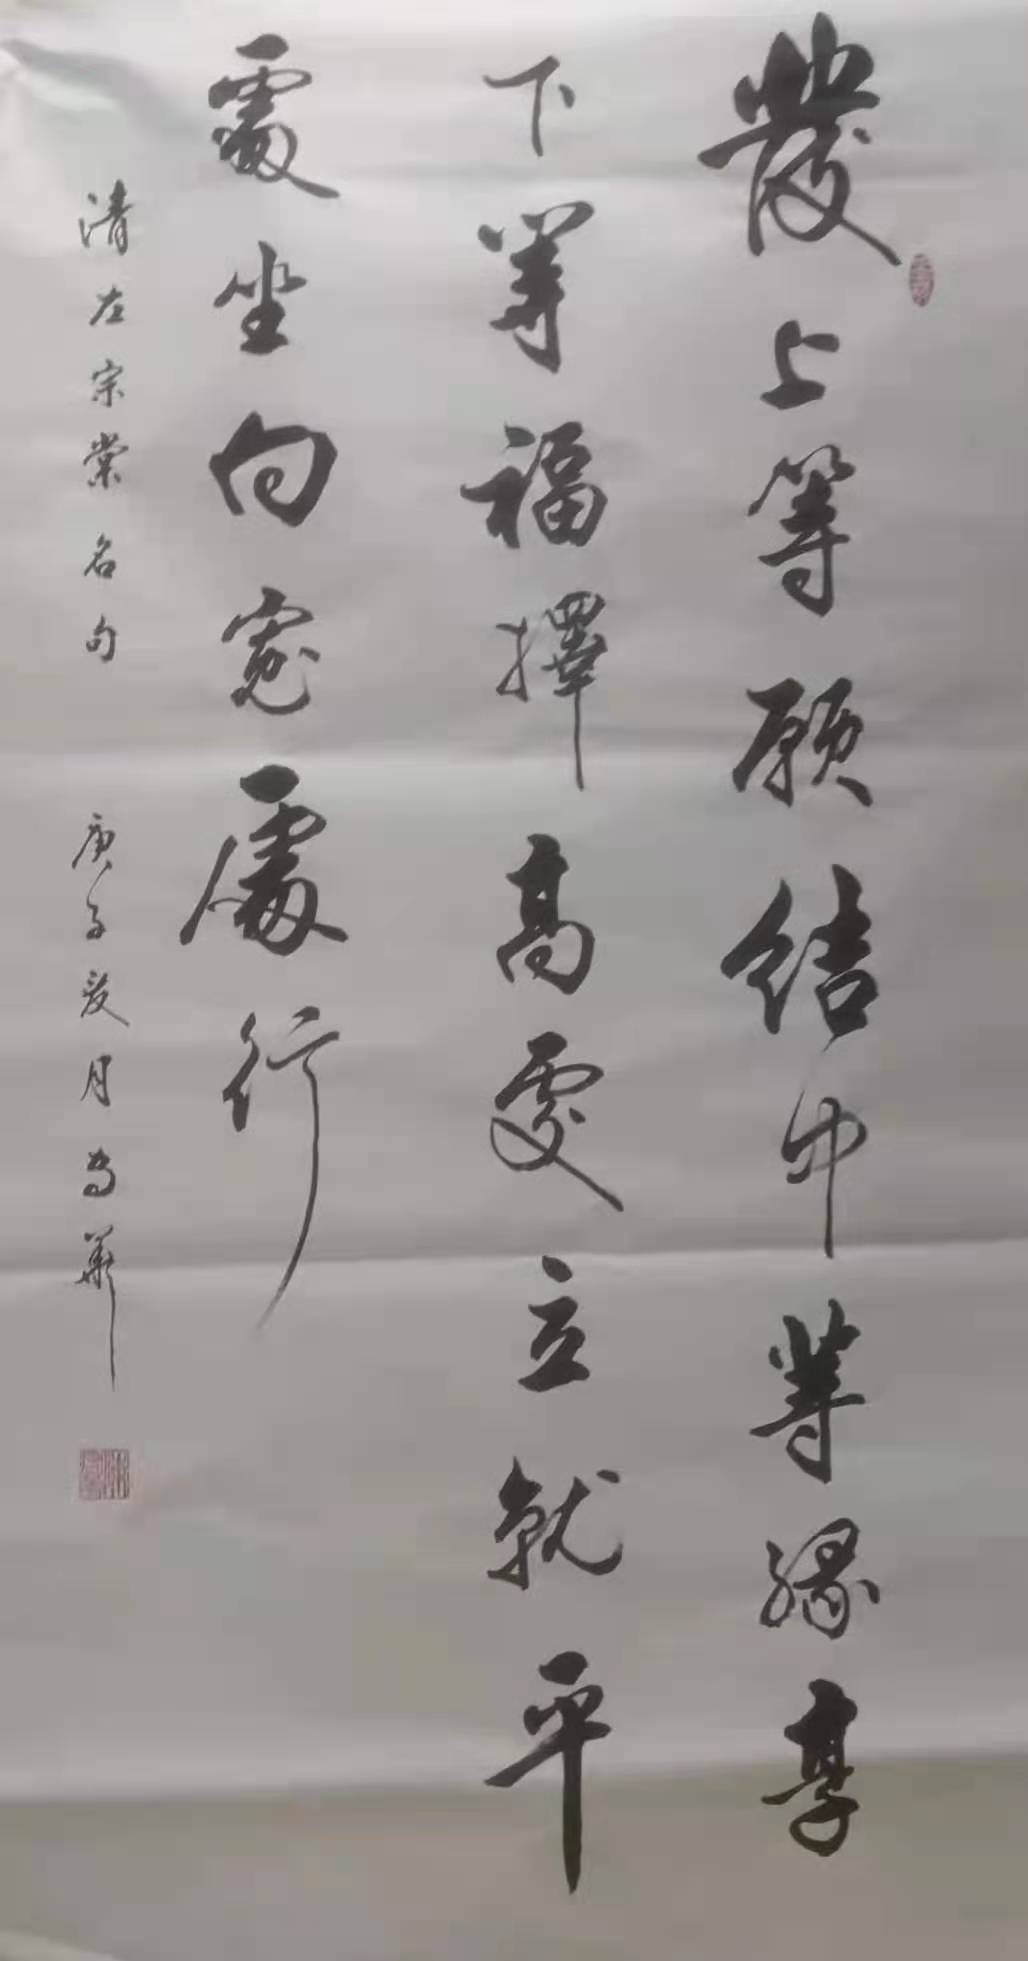 發上等願結中等緣享
下等福擇高處立就平
處坐向寬處行
清左宗棠名句
庚子夏月 華